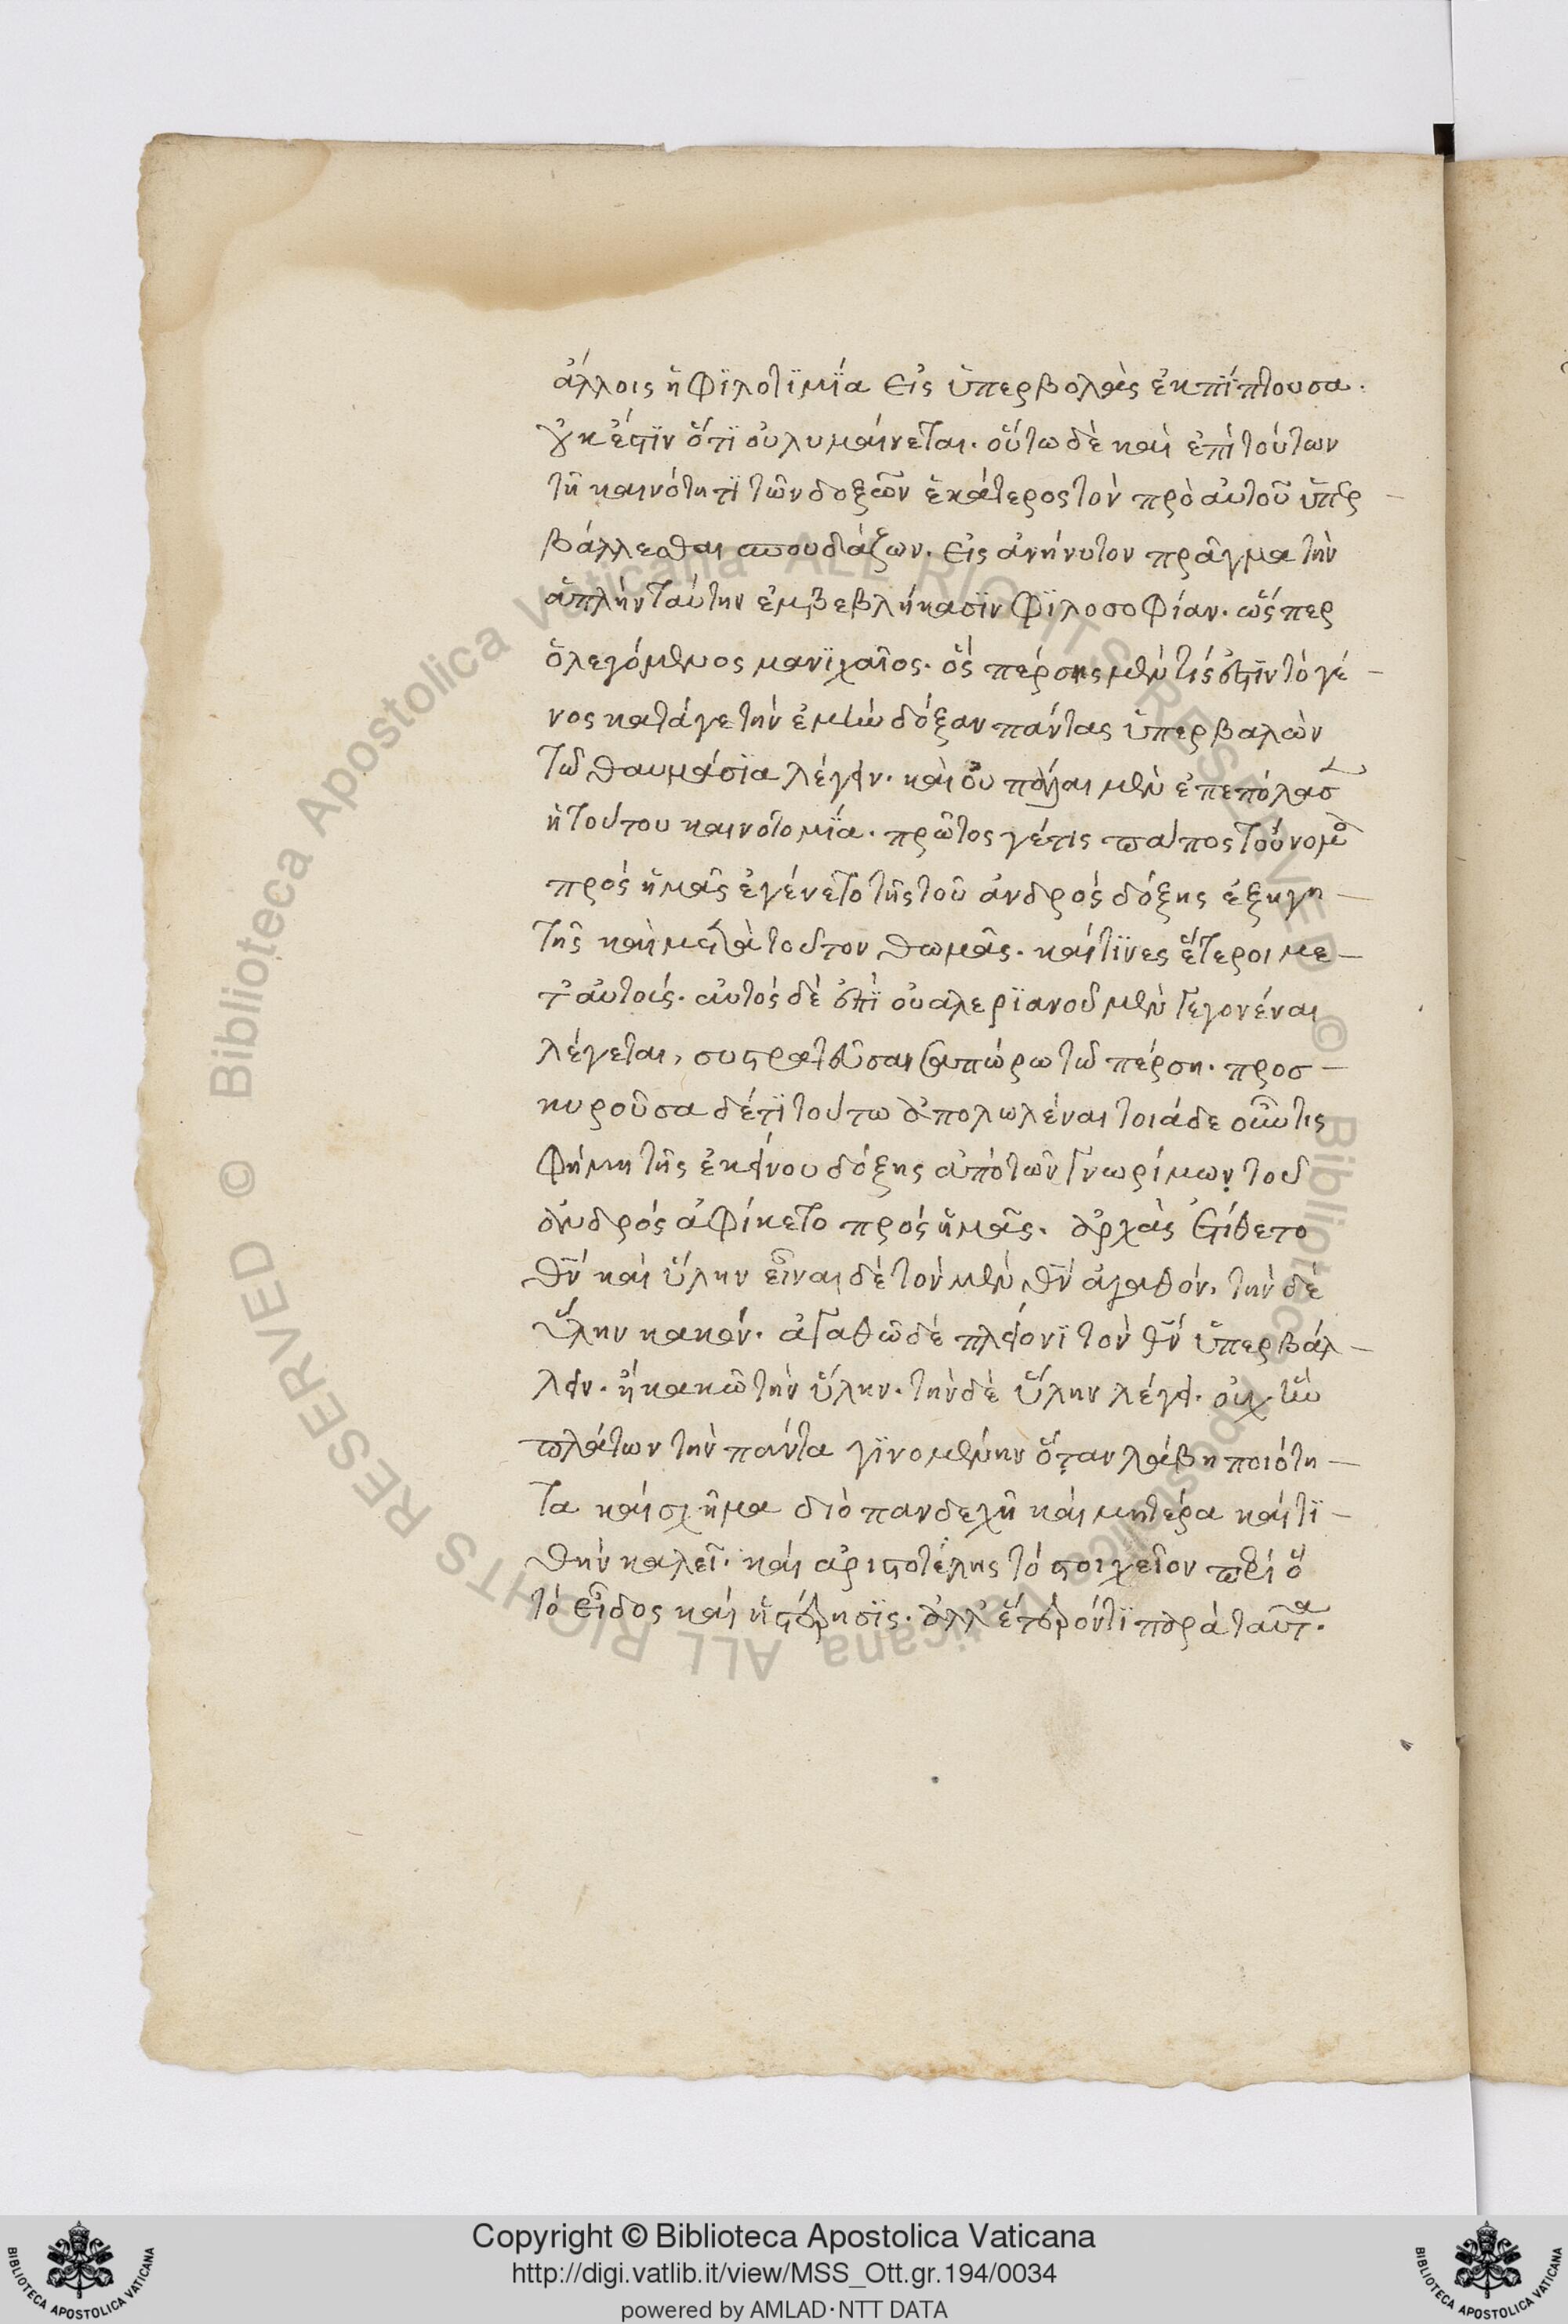 ἄλλοις ἡ φϊλοτϊμϊα εἰς ὑπερβολὰς ἐκπϊπτουσα.
οὐκ ἔστϊν ὅτϊ οὐ λυμαίνεται. οὕτω δὲ καὶ ἐπὶ τούτων
τῆ καινότητϊ τῶν δοξῶν ἑκάτερος τὸν πρὸ αὐτοῦ ὑπερ
βάλλεσθαι σπουδάζων. εἰς ἀνήνυτον πρᾶγμα τὴν
ἁπλὴν ταύτην ἐμβεβλήκασϊν φϊλοσοφίαν. ὥσπερ
ὁ λεγόμενος μανϊχαῖος. ὃς πέρσης μὲν τίς ἐστϊν τὸ γέ
νος κατά γε τὴν ἐμὴν δόξαν πάντας ὑπερβαλὼν
τῶ θαυμάσϊα λέγειν. καὶ οὐ πάλαι μὲν ἐπεπόλασ
ἡ τούτου καινοτομϊα. πρῶτος γέ τις πάπος τοὔνομα
πρὸς ἡμᾶς ἐγένετο τῆς τοῦ ἀνδρὸς δόξης ἐξηγη
τὴς καὶ μετὰ τοῦτον θωμᾶς. καί τϊνες ἕτεροι με
τ' αὐτοίς. αὐτὸς δὲ ἐπὶ οὐαλερϊανοῦ μὲν γεγονέναι
λέγεται, συστρατεῦσαι σαπώρω τῶ πέρση. προσ
κυροῦσα δέ τϊ τούτω ἀπολωλέναι τοιάδε οὖν τις
φήμη τῆς ἐκείνου δόξης ἀπὸ τῶν γνωρίμων τοῦ
ἀνδρὸς ἀφίκετο πρὸς ἡμᾶς. ἀρχὰς ἐτίθετο
θν καὶ ὕλην εἶναι δὲ τὸν μὲν θν ἀγαθόν, τὴν δὲ
ὕλην κακόν. ἀγαθῶ δὲ πλείονϊ τὸν θν ὑπερβάλ
λειν. ἢ κακῶ τὴν ὕλην. τὴν δὲ ὕλην λέγει. οὐχ ἣν
πλάτων τὴν πάντα γϊνομένην ὅταν λάβη ποιότη
τα καὶ σχῆμα διὸ πανδεχῆ καὶ μητέρα καὶ τϊ
θὴν καλεῖ. καὶ ἀριστοτέλης τὸ στοιχεῖον περὶ ὃ
τὸ εἶδος καὶ ἡ στέρησϊς. ἀλλ' ἕτερόν τϊ παρὰ ταῦτα.
Copyright © Biblioteca Apostolica Vaticana
http://digi.vatlib.it/view/MSS_Ott.gr.194/0034
powered by AMLAD·NTT DATA
BIBLIOTECA APOSTOLICA VATICANA
BIBLIOTECA APOSTOLICA VATICANA
© Biblioteca Apostolica Vaticana ALL RIGHTS RESERVED
© Biblioteca Apostolica Vaticana ALL RIGHTS RESERVED